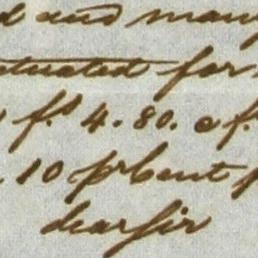 d and many
tuated for
f.s 4.80. c f.
10 prCent p
dearsir